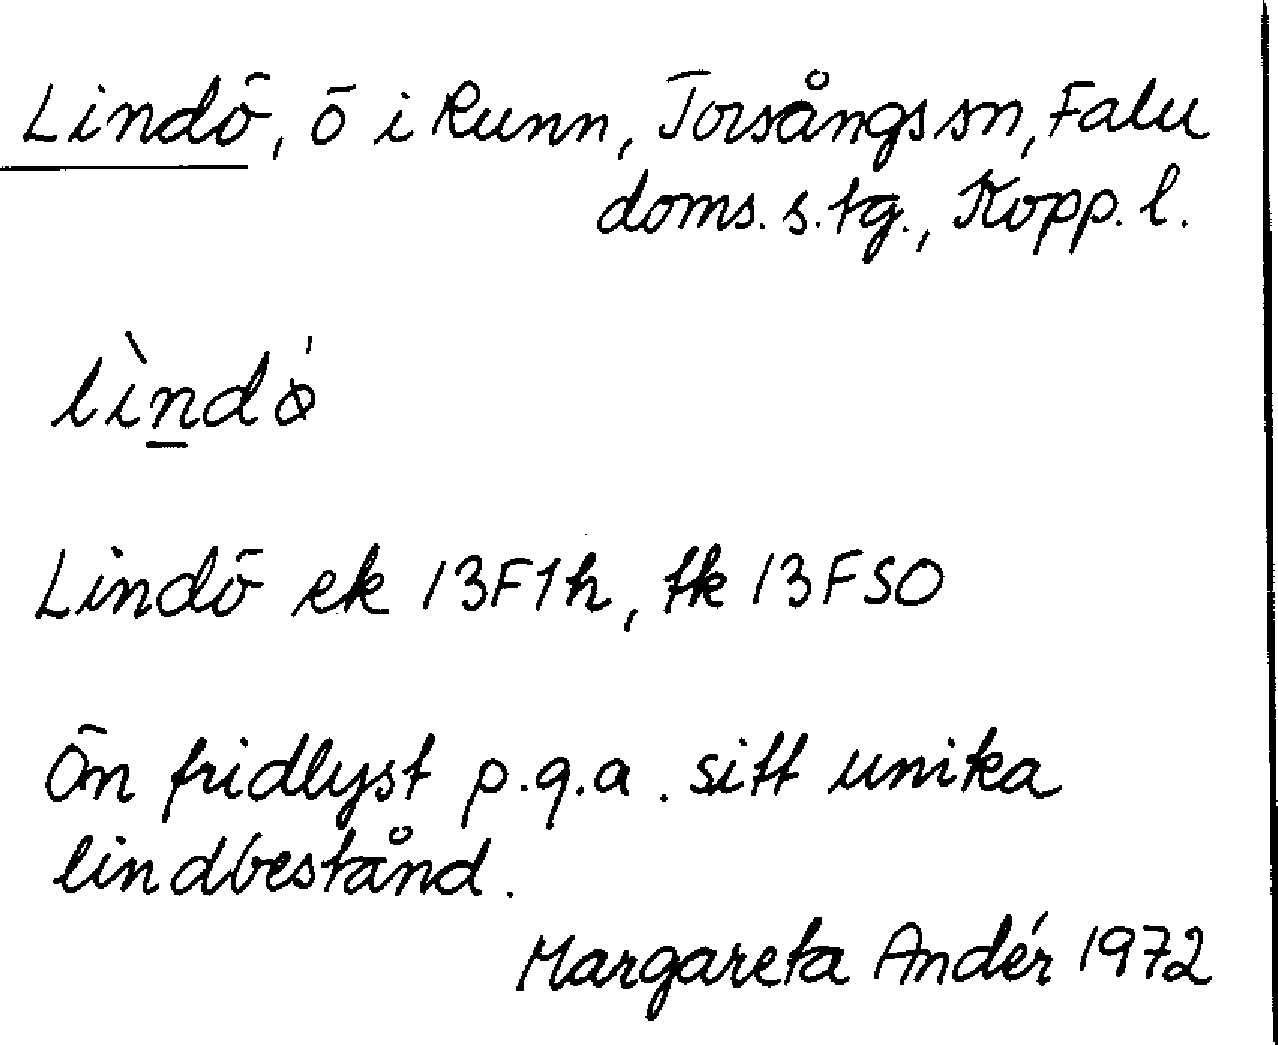 Lindö, ö i Runn, Torsångs sn, Falu
doms. s. tg., Kopp. l.
lìndǿ
Lindö ek 13F1h, tk 13FSO
Ön fridlyst p.g.a. sitt unika
lindbestånd.
Margareta Andér 1972